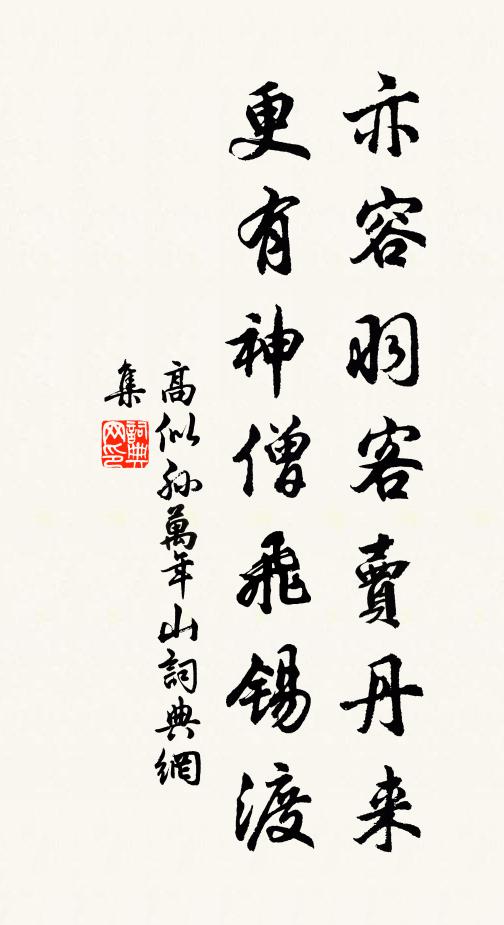 亦容羽客賣丹来
更有神僧飛錫渡
高似孫萬年山詞典網
集
詞典網印